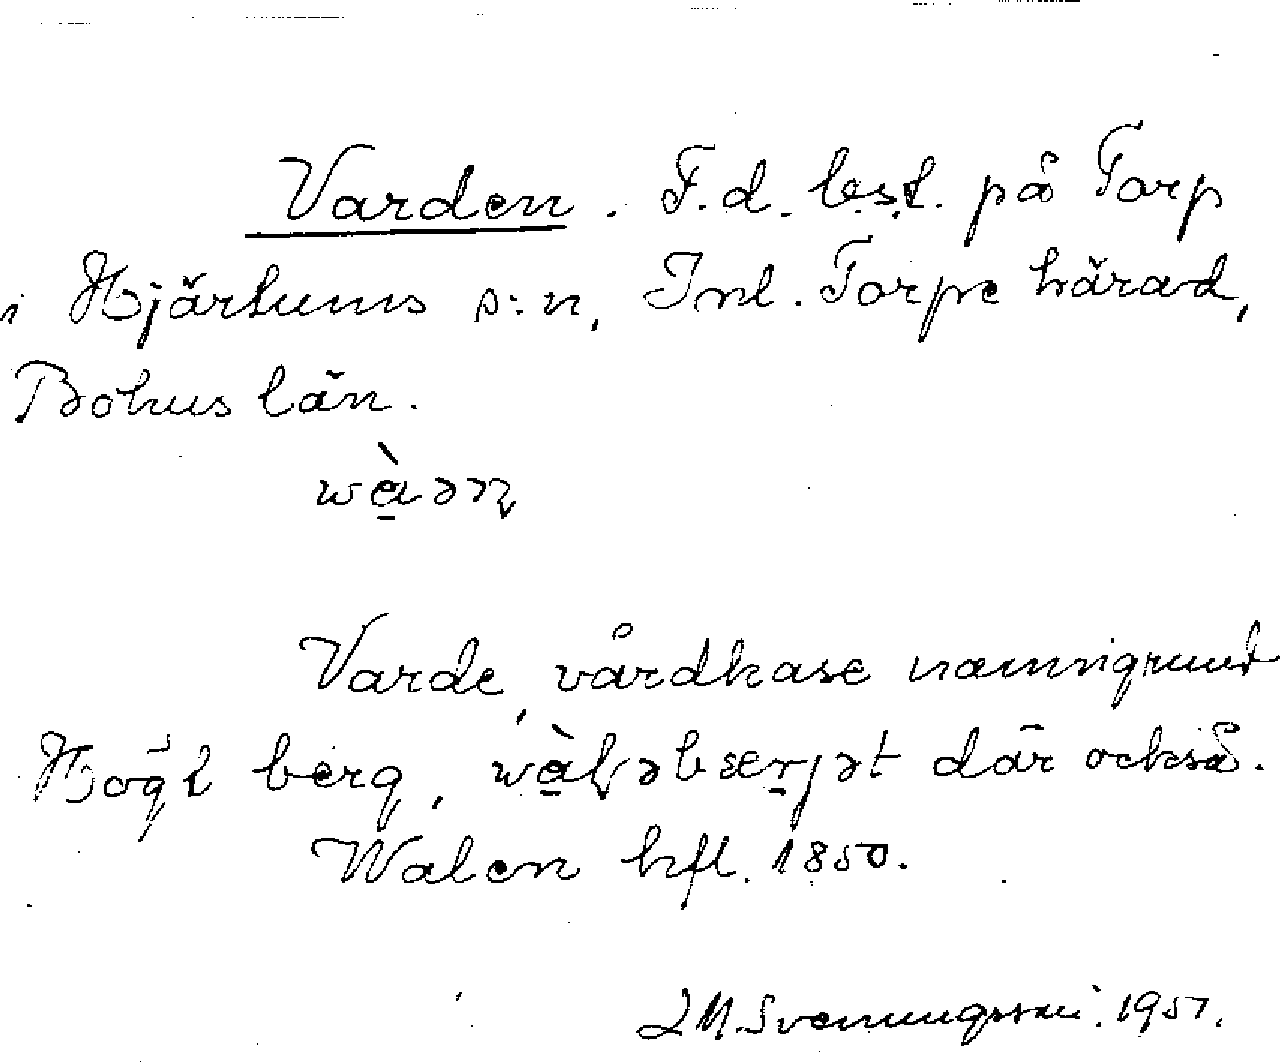 Varden. F.d. lest. på Torp
i Hjärtums s:n, Inl. Torpe härad,
Bohus län.
wàəɳ
Varde, vårdkase namngrund
Högt berg, wàɽəbærjət där också.
Walen hfl. 1850.
1957.